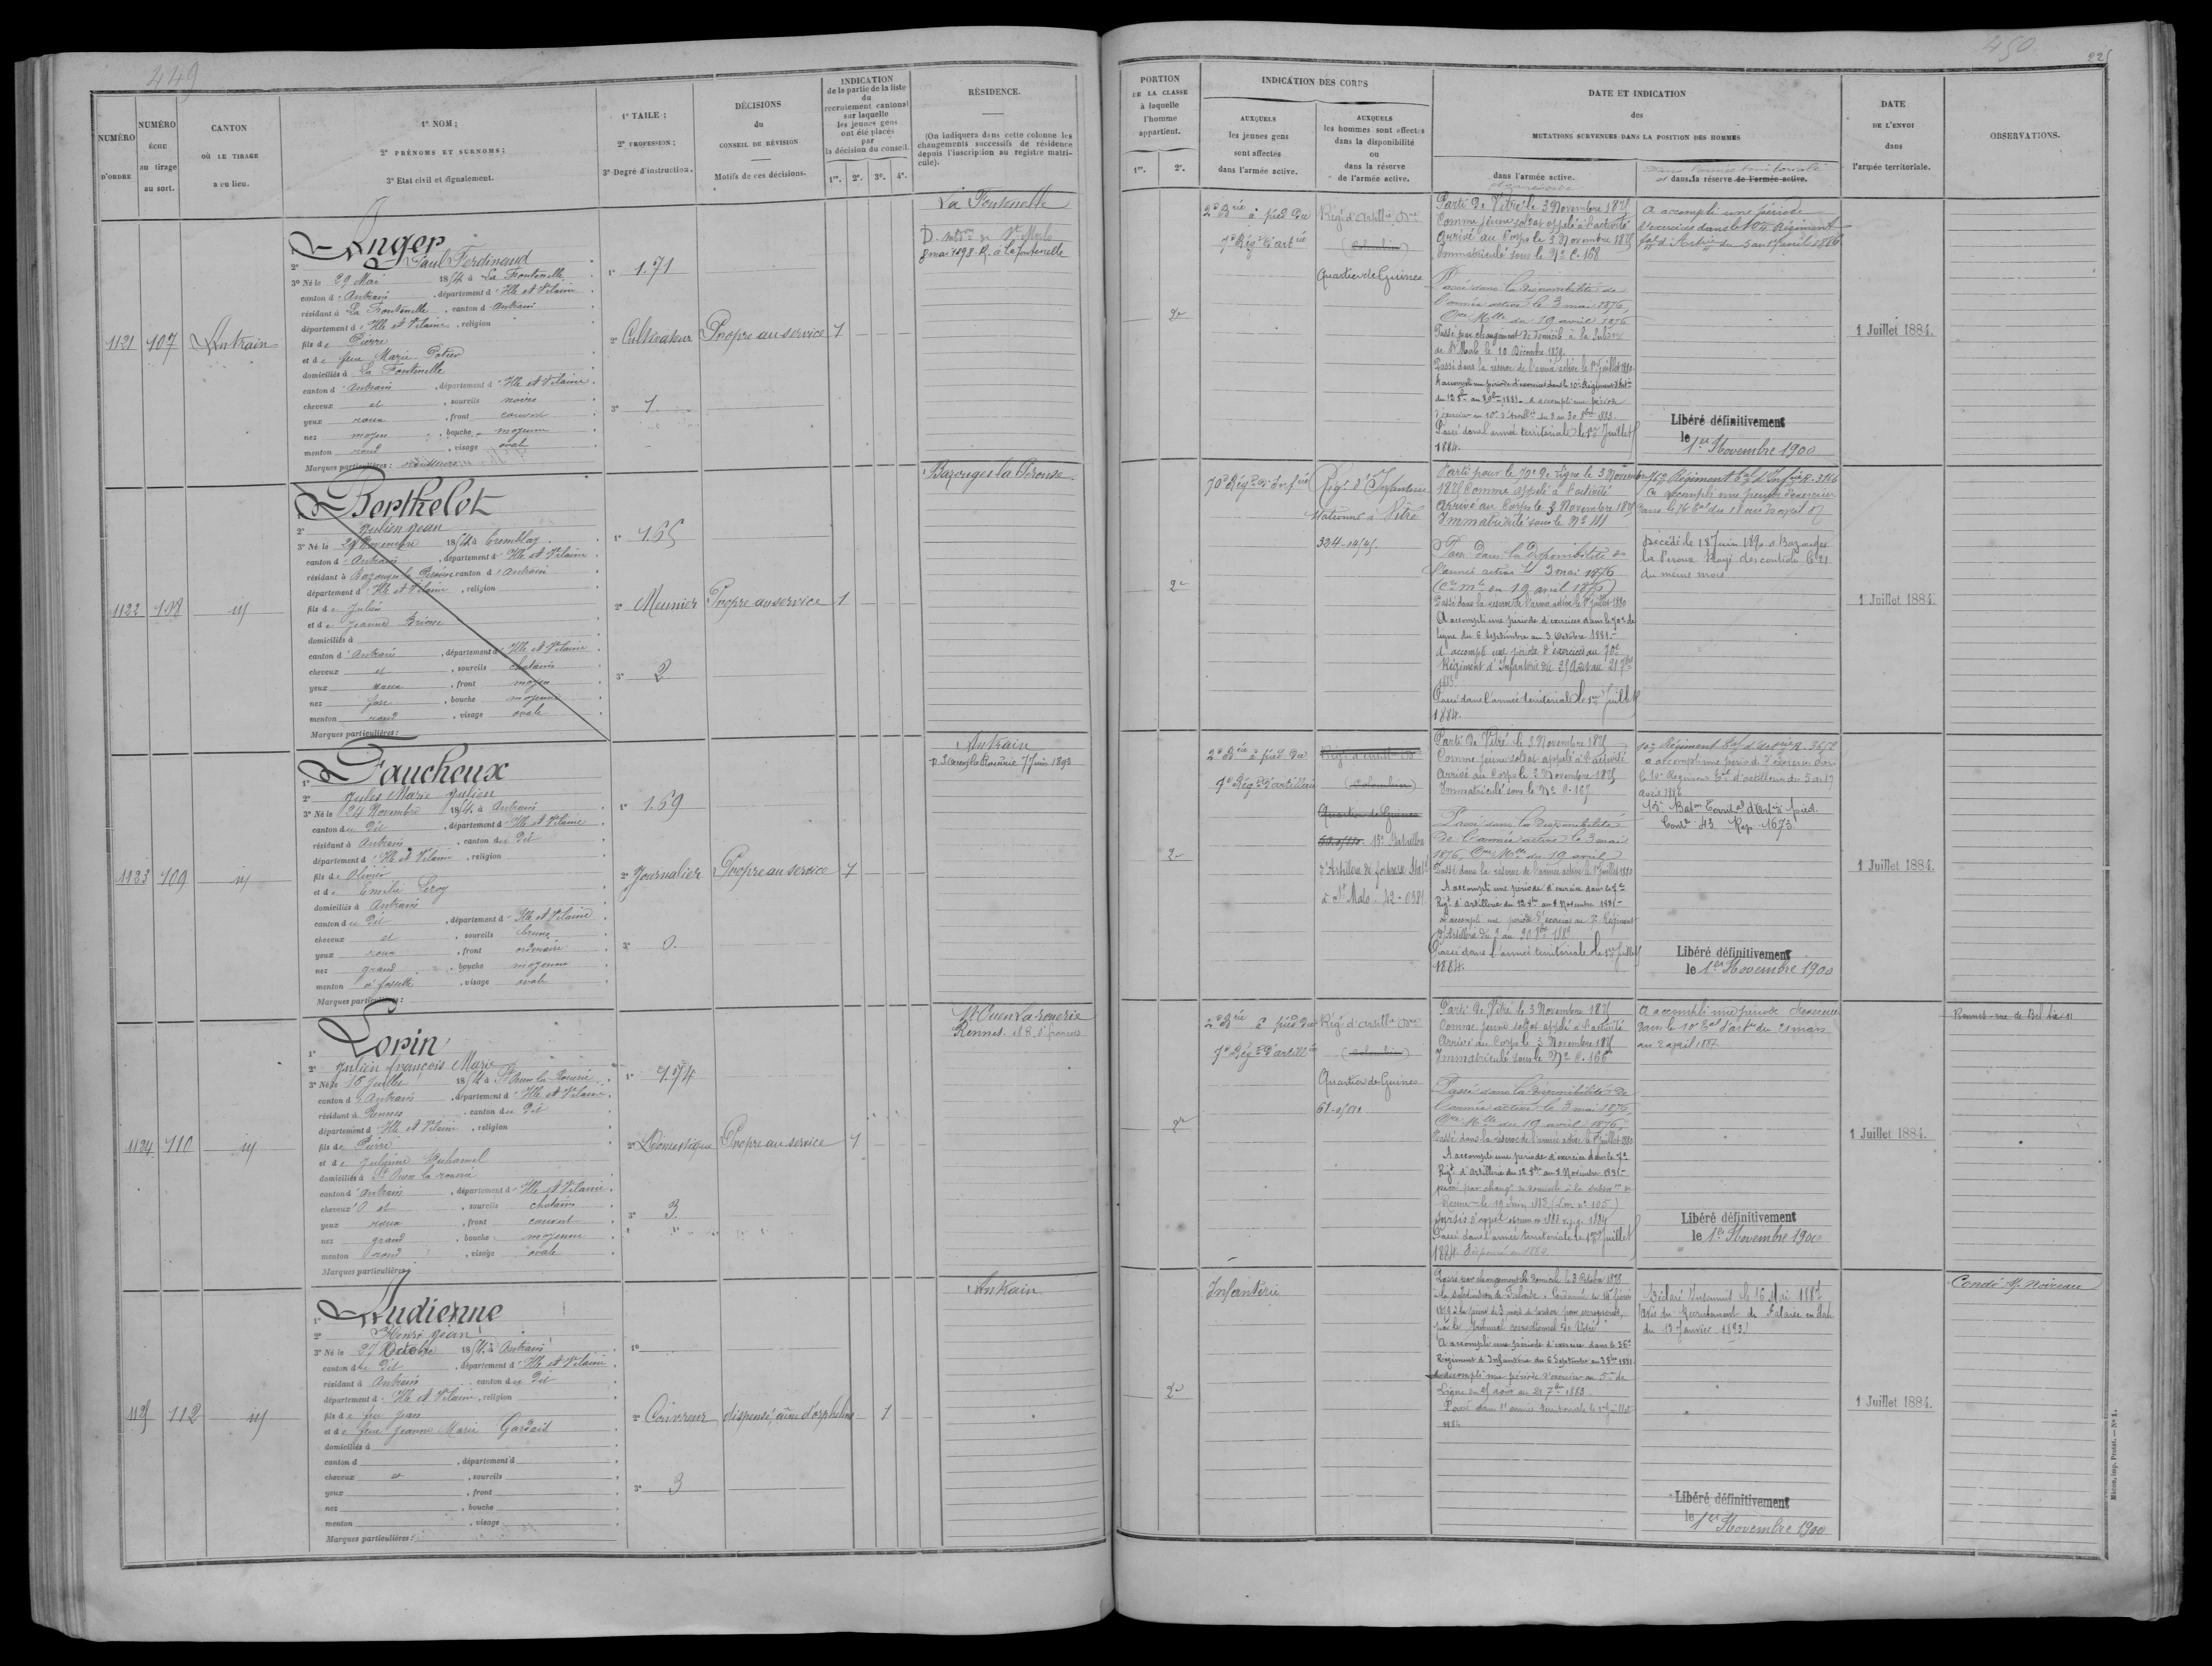 449
NUMÉRO
D'ORDRE
NUMÉRO
ÉCHU
au tirage
au sort.
CANTON
OÙ LE TIRAGE
a eu lieu.
1° NOM ;
2° PRÉNOMS ET SURNOMS ;
3° Etat civil et signalement.
1° TAILE ;
2° PROFESSION ;
3° Degré d'instruction.
DÉCISIONS
du
CONSEIL DE RÉVISION
Motifs de ces décisions.
INDICATION
de la partie de la liste
du
recrutement cantonal
sur laquelle
les jeunes gens
ont été placés
par
la décision du conseil.
1re. 2e. 3e. 4e.
RÉSIDENCE.
(On indiquera dans cette colonne les
changements successifs de résidence
depuis l'inscription au registre matri-
cule).
1121 107 Antrain
Anger
2° Paul Ferdinand
3° Né le 29 Mai 1854 à La Fontenelle
canton d'Antrain, département d'Ille et Vilaine
résidant à La Fontenelle, canton d'Antrain
département d'Ille et Vilaine, religion
fils de Pierre
et de feue Marie Potier
domiciliés à La Fontenelle
canton d'Antrain, département d'Ille et Vilaine
cheveux et, sourcils noirs
yeux roux, front couvert
nez moyen, bouche moyenne
menton rond, visage ovale
Marques particulières :
1° 1.71
2° Cultivateur
3° 1
Propre au service 1
La Fontenelle
D. subd. de St Malo
8 mai 1898. R. à la Fontenelle
1122 108 id
Berthelot
2° Julien Jean
3° Né le 29 Novembre 1854 à Tremblay
canton d'Antrain, département d'Ille et Vilaine
résidant à Bazouges la Pérouse canton d'Antrain
département d'Ille et Vilaine, religion
fils de Julien
et de Jeanne
domiciliés à
canton d'Antrain, département d'Ille et Vilaine
cheveux et, sourcils chatains
yeux roux, front moyen
nez fort, bouche moyenne
menton rond, visage ovale
Marques particulières :
1° 1.65
2° Meunier
3° 2
Propre au service 1
Bazouges la Pérouse
1123 109 id
Faucheux
1°
2° Jules Marie Julien
3° Né le 24 Novembre 1854 à Antrain
canton du Dit, département d'Ille et Vilaine
résidant à Antrain, canton du Dit
département d'Ille et Vilaine, religion
fils de Olivier
et de Emilie Leroy
domiciliés à Antrain
canton du Dit, département d'Ille et Vilaine
cheveux et, sourcils bruns
yeux roux, front ordinaire
nez grand, bouche moyenne
menton à fossette, visage ovale
Marques particulières :
1° 1.69
2° Journalier
3° 0
Propre au service 1
Antrain
7 Juin 1893
1124 110 id
Lorin
1°
2° Julien François Marie
3° Né le 15 Juillet 1854 à St Ouen la Rouerie
canton d'Antrain, département d'Ille et Vilaine
résidant à Rennes, canton du Dit
département d'Ille et Vilaine, religion
fils de Pierre
et de Julienne Duhamel
domiciliés à St Ouen la rouerie
canton d'Antrain, département d'Ille et Vilaine
cheveux et, sourcils chatains
yeux roux, front couvert
nez grand, bouche moyenne
menton rond, visage ovale
Marques particulières :
1° 1.74
2° Domestique
3° 3
Propre au service 1
St Ouen La rouerie
Rennes
1125 112 id
Audienne
1°
2° Henri Jean
3° Né le 27 Octobre 1854 à Antrain
canton du Dit, département d'Ille et Vilaine
résidant à Antrain canton du Dit
département d'Ille et Vilaine, religion
fils de feu Jean
et de feue Jeanne Marie
domiciliés à
canton d, département d
cheveux et, sourcils
yeux, front
nez, bouche
menton, visage
Marques particulières :
1°
2° Couvreur
3° 3
dispensé, aîné d'orphelins 1
Antrain
450
225
PORTION
DE LA CLASSE
à laquelle
l'homme
appartient.
1re. 2e.
INDICATION DES CORPS
AUXQUELS
les jeunes gens
sont affectés
dans l'armée active.
AUXQUELS
les hommes sont affectés
dans la disponibilité
ou
dans la réserve
de l'armée active.
DATE ET INDICATION
des
MUTATIONS SURVENUES DANS LA POSITION DES HOMMES
dans l'armée active.
et dans la réserve de l'armée active.
DATE
DE L'ENVOI
dans
l'armée territoriale.
OBSERVATIONS.
2e
2e Bie à pied du
7e Régt d'artie
Régt d'Artillie
(Colombier)
Quartier de Guines
Parti de Vitré le 3 Novembre 1875
Comme jeune soldat appelé à l'activité
Arrivé au Corps le 3 Novembre 1875
Immatriculé sous le No C. 168
Passé dans la disponibilité de
l'armée active le 3 mai 1876,
du 19 avril 1876
Passé par changement de domicile à la Subdon
de St Malo le 10 Décembre 1879.
Passé dans la réserve de l'armée active le 1er Juillet 1880
A accompli une période d'exercices dans le 10e Régiment d'Art
Passé dans l'armée territoriale le 1er Juillet
1884.
A accompli une période
d'exercices dans le 10e Régiment
tal d'Artie du 5 au 17 avril 1886
Libéré définitivement
le 1er Novembre 1900
1 Juillet 1884.
2e
70e Régt d'Infie
Régt d'Infanterie
stationné à Vitré
Parti pour le 70e de Ligne le 3 Novembre
1875 Comme appelé à l'activité
Arrivé au Corps le 3 Novembre 1875
Immatriculé sous le No 111
Passé dans la disponibilité de
l'armée active le 3 mai 1876
(Cre Mlle du 19 avril 1876)
Passé dans la réserve de l'armée active le 1er Juillet 1880
A accompli une période d'exercices dans le 70e de
ligne du 6 Septembre au 3 Octobre 1881.
A accompli une période d'exercices au 70e
Régiment d'Infanterie du 25 Août au 21 7bre
1883
Passé dans l'armée territoriale le 1er Juillet
1884.
76e Régiment tal d'Infie
A accompli une période d'exercices
dans le 76 tal du 18 au 30 avril 87
Décédé le 18 Juin 1890 à Bazouges
la Pérouse Rayé des contrôles le 21
du même mois
1 Juillet 1884.
2e
2e Bie à pied du
7e Régt d'artillerie
(Colombier)
Quartier de Guines
15e Bataillon
d'Artillerie de forteresse
à St Malo
Parti de Vitré le 3 Novembre 1875
Comme jeune soldat appelé à l'activité
Arrivé au Corps le 3 Novembre 1875
Immatriculé sous le No C. 167
Passé dans la disponibilité
de l'armée active le 3 mai
1876, Cre Mlle du 19 avril
Passé dans la réserve de l'armée active le 1er Juillet 1880
A accompli une période d'exercices dans le 7e
Régt d'Artillerie du 12 8bre au 8 Novembre 1881
A accompli une période d'exercices au 7e Régiment
d'Artillerie du 3 au 30 8bre 1883
Passé dans l'armée territoriale le 1er Juillet
1884.
10e Régiment
a accompli une période d'exercices dans
le 10e Régiment tal d'artillerie du 5 au 17
avril 1886
15e Baton Territal d'Artie à pied.
Contle 43 Rep. 1673
Libéré définitivement
le 1er Novembre 1900
1 Juillet 1884.
2e
2e Bie à pied du
7e Régt d'artillie
Régt d'artillie
(Colombier)
Quartier de Guines
Parti de Vitré le 3 Novembre 1875
Comme jeune soldat appelé à l'activité
Arrivé au Corps le 3 Novembre 1875
Immatriculé sous le No C. 166
Passé dans la disponibilité de
l'armée active le 3 mai 1876,
Cre Mlle du 19 avril 1876,
Passé dans la réserve de l'armée active le 1er Juillet 1880
A accompli une période d'exercices dans le 7e
Régt d'Artillerie du 12 8bre au 8 Novembre 1881
Passé dans l'armée territoriale le 1er Juillet
1884.
A accompli une période d'exercices
dans le 10e tal d'artie du 21 mars
au 2 avril 1887
Libéré définitivement
le 1er Novembre 1900
1 Juillet 1884.
2e
Infanterie
Passé par changement de domicile le 3 Octobre 1878
la subdivision de Falaise. Condamné le
par le Tribunal correctionnel de Vitré
A accompli une période d'exercices dans le 36e
Régiment d'Infanterie du 6 Septembre au 3 8bre 1881
A accompli une période d'exercices au 5e de
Ligne du 25 août au 21 7bre 1883
Passé dans l'armée territoriale le 1er Juillet
1884
Déclaré Insoumis le 16 Mai 1887
(avis du Recrutement de Falaise en date
du 13 Janvier 1893)
Libéré définitivement
le 1er Novembre 1900
1 Juillet 1884.
Condé s/ Noireau
Mâcon, imp. Protat. — No 1.